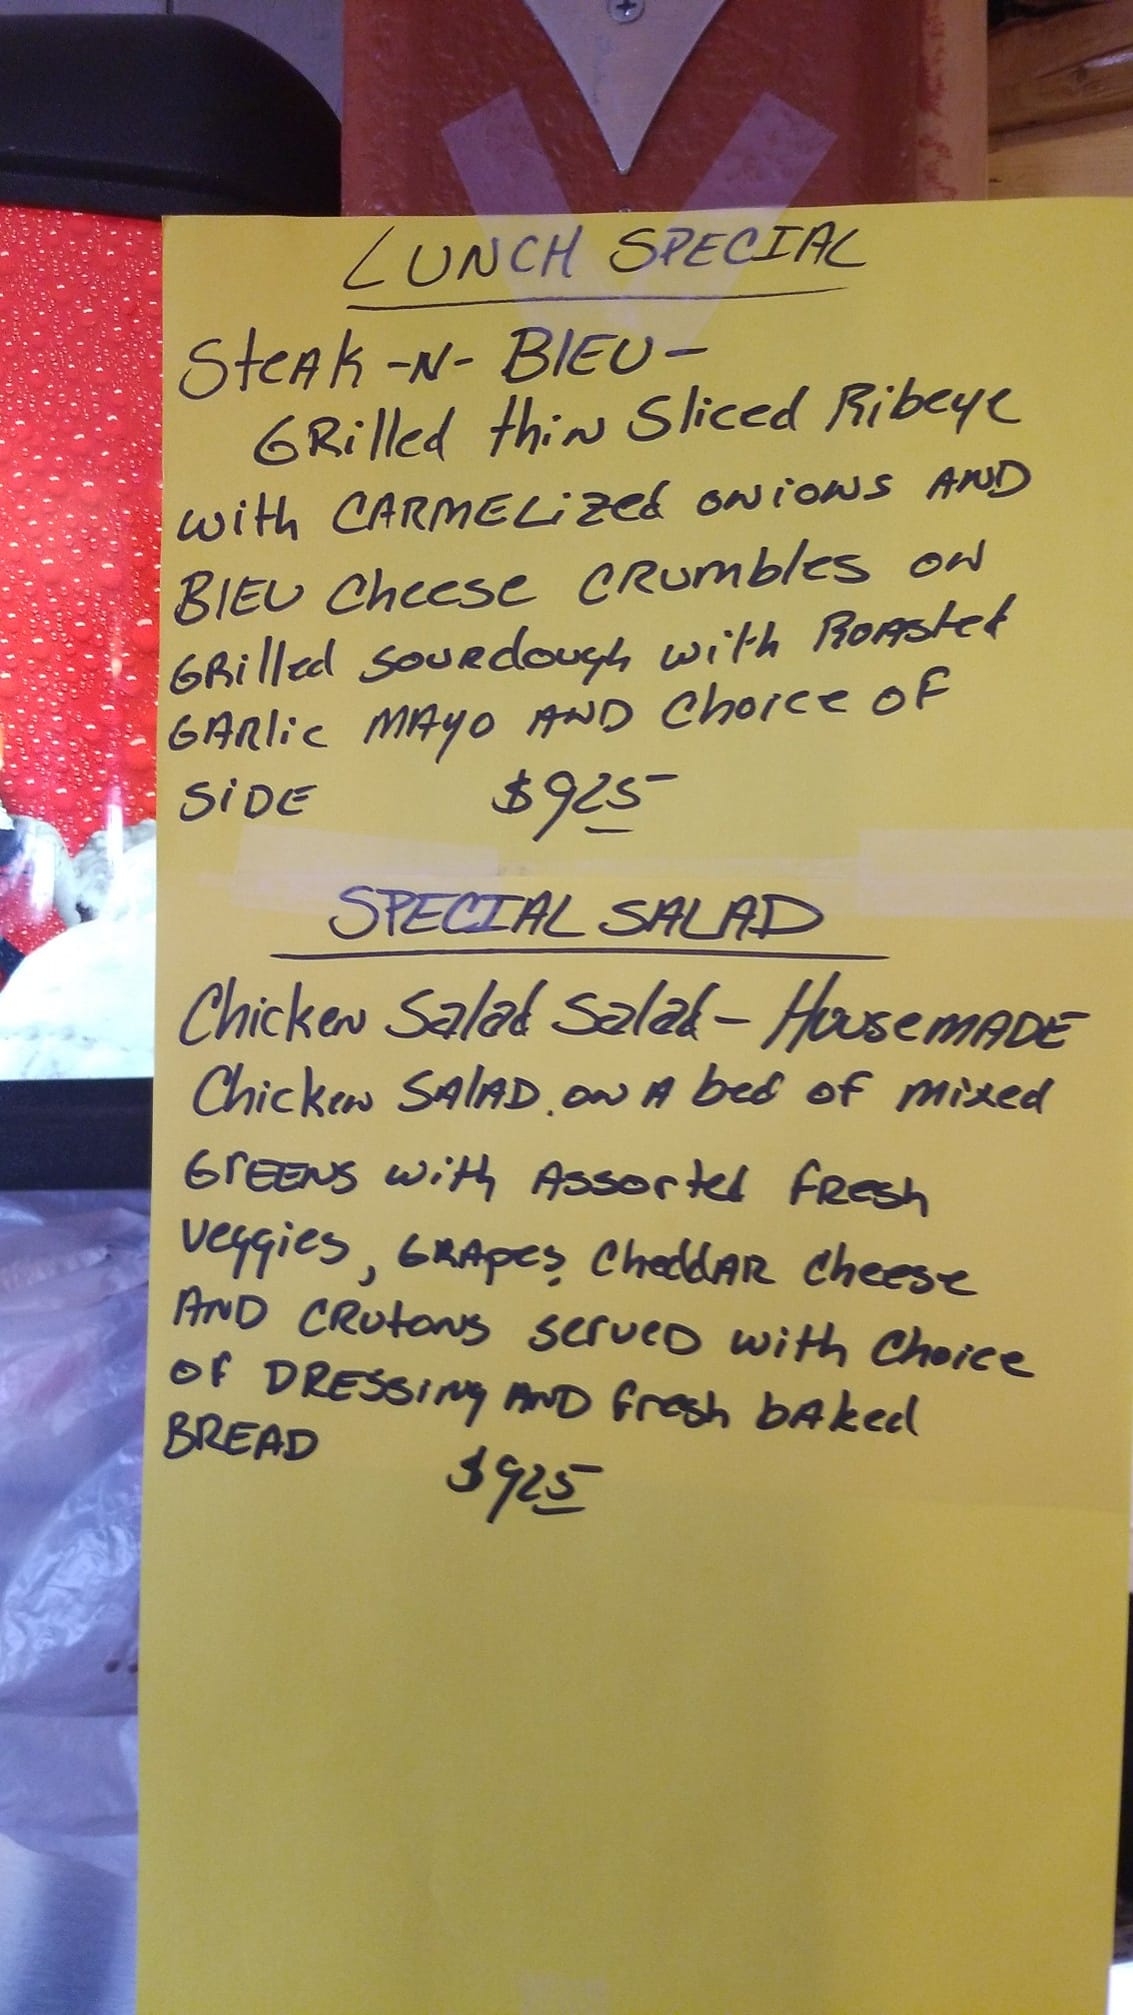 LUNCH SPECIAL
Steak -N- BlEU -
GRilled thin Sliced Ribeye
with CARMELized onions AND
BlEU Cheese CRumbles on
GRilled sourdough with Roasted
GARlic MAyo AND Choice of
SiDE $925
SPECIAL SALAD
Chicken Salad Salad - HousemADE
Chicken SAlAD. on A bed of mixed
GrEENS with Assorted fResh
veggies, GRApes, CheddAR cheese
AND CRutons served with Choice
of DRESSing AND fresh bAked
BREAD $925